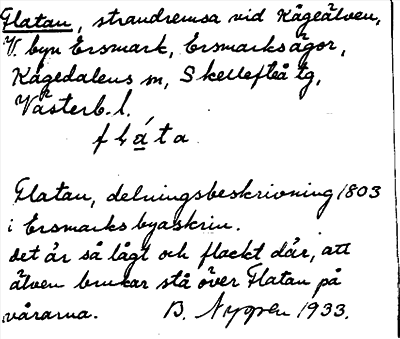 Flatan, strandremsa vid Kågeälven,
V. byn Ersmark, Ersmarksågor,
Kågedalens sn, Skellefteå tg,
Västerb. l.
fláta
Flatan, delningsbeskrivning 1803
i Ersmarks byaskrin.
det är så lågt och flackt där, att
älven brukar stå över Flatan på
vårarna. B. Nygren 1933.